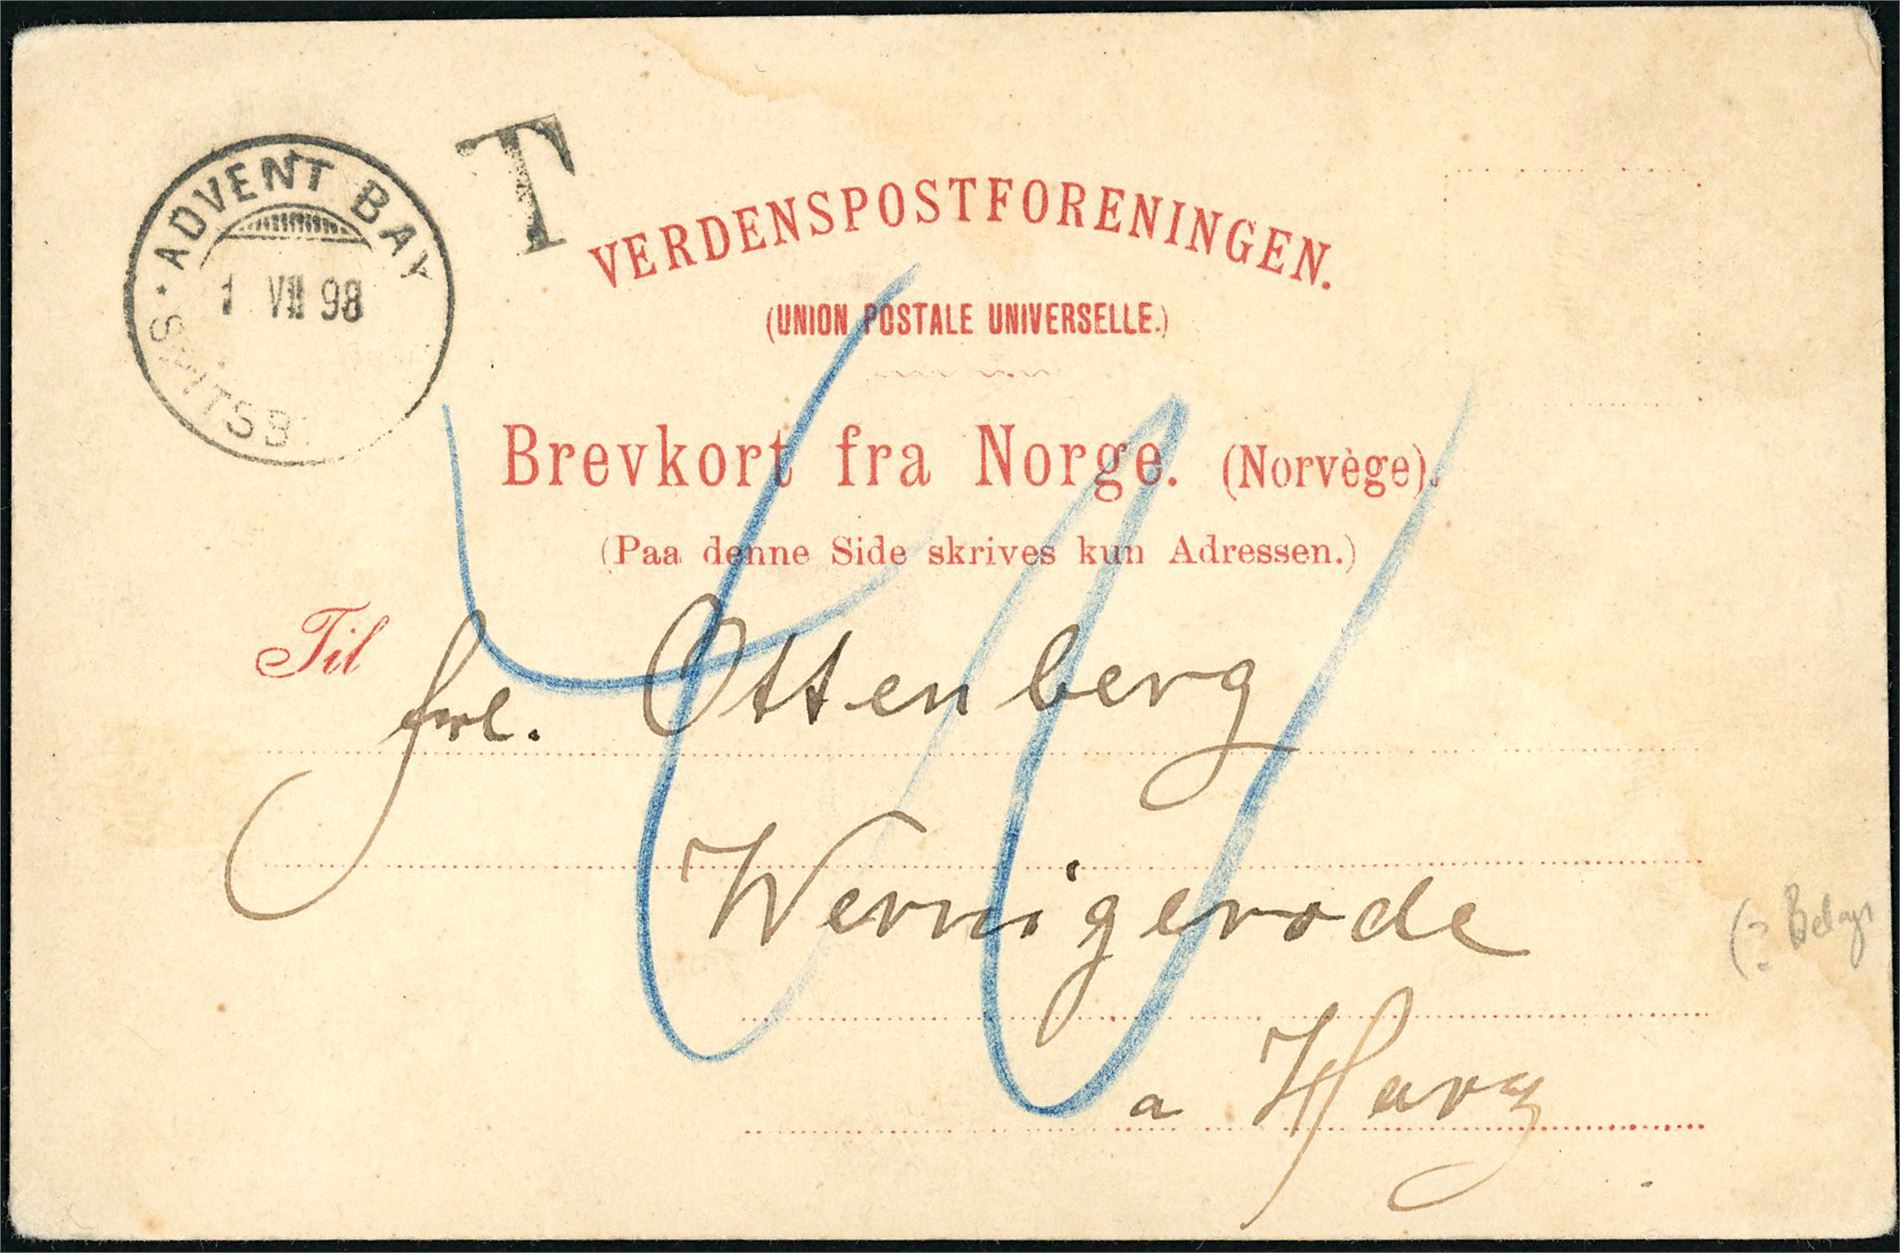 ADVENT BAY
1 VII 98
SPITSB
T
VERDENSPOSTFORENINGEN.
(UNION POSTALE UNIVERSELLE.)
Brevkort fra Norge. (Norvège).
(Paa denne Side skrives kun Adressen.)
Til
Frl. Ottenberg
Wernigerode
a Harz